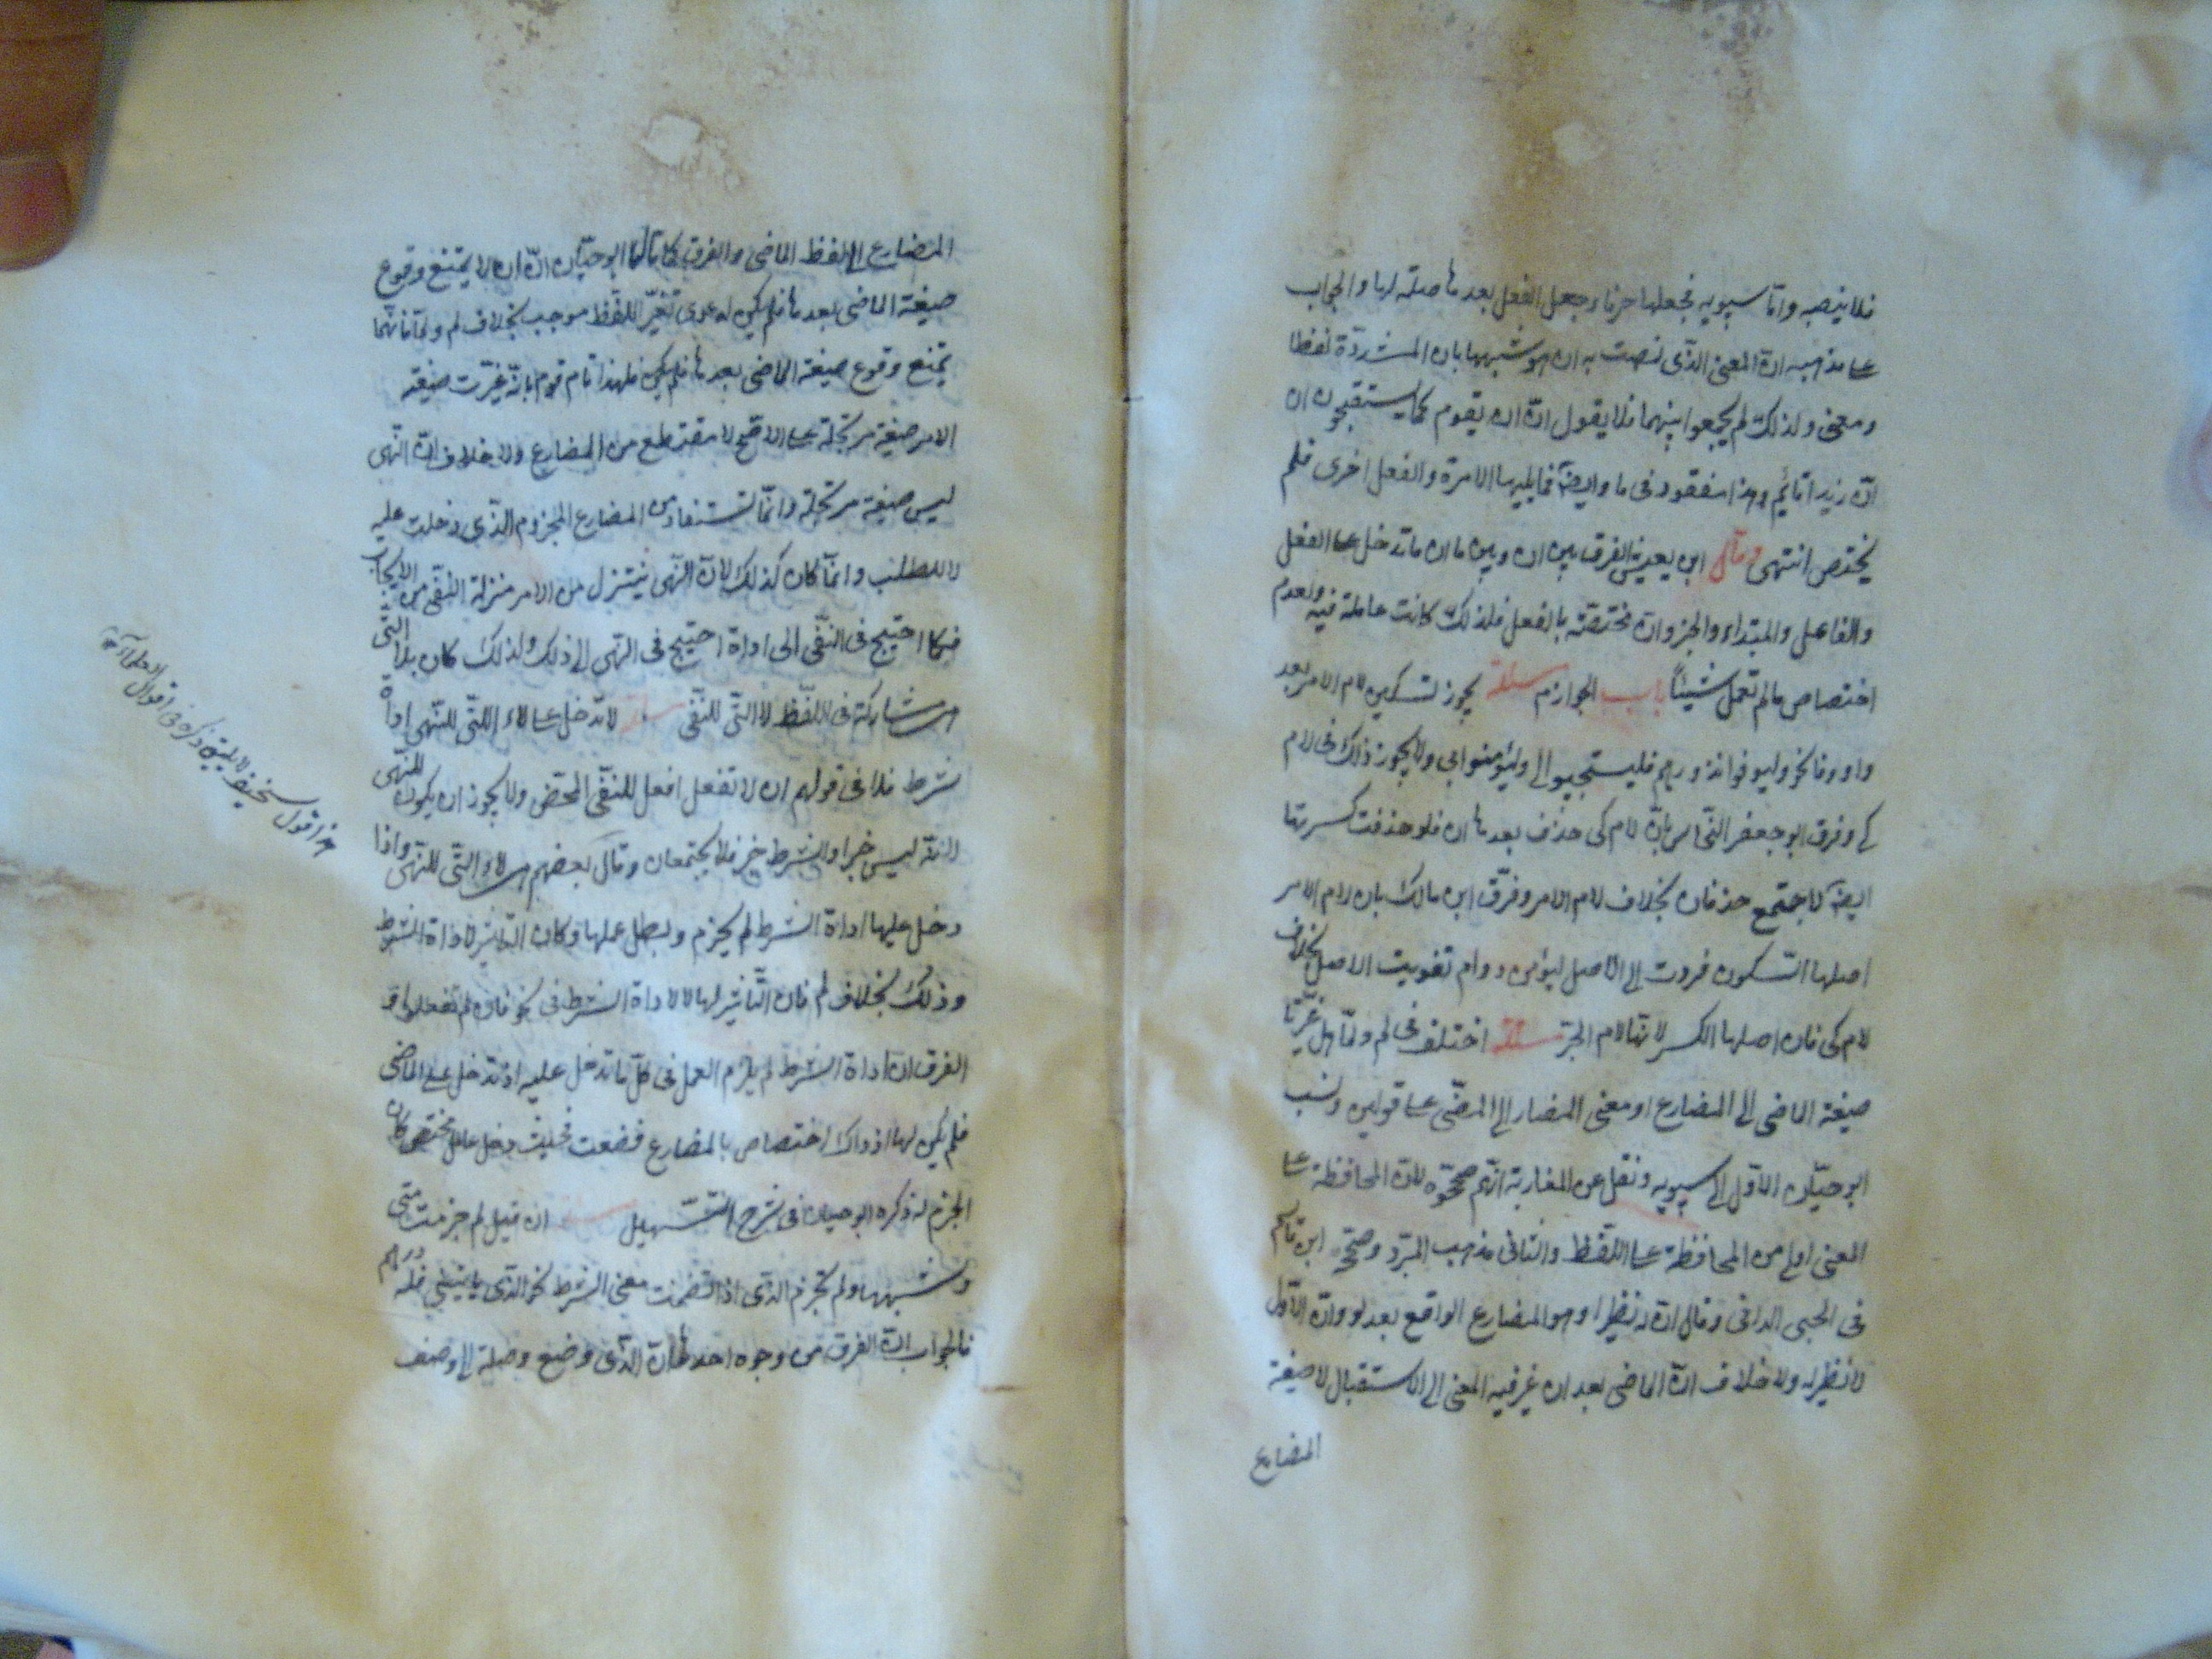 فلا ينصبه واما سيبويه فجعلها حرفا وجعل الفعل بعدها صلة لها والجواب
على مذهبه ان المعنى الذى نصبت به ان هو شبهها بان المشددة لفظا
ومعنى ولذلك لم يجمعوا بينهما فلا يقول ان ان يقوم كما يستقبحون ان
ان زيدا قائم وهذا مفقود فى ما وايضا فما يليها الاسم مرة والفعل اخرى فلم
يختص انتهى وقال ابن يعيش الفرق بين ان وبين ما ان ما تدخل على الفعل
والفاعل والمبتداء والخبر وان مختصة بالفعل فلذلك كانت عاملة فيه ولعدم
اختصاص ما لم تعمل شيئا باب الجوازم مسئلة يجوز تسكين لام الامر بعد
واو وفا نحو وليوفوا نذورهم فليستجيبوا لى وليؤمنوا بى ولا يجوز ذلك فى لام
كى وفرق ابو جعفر النحاس بان لام كى حذف بعدها ان فلو حذفت كسرتها
ايضا لاجتمع حذفان بخلاف لام الامر وفرق ابن مالك بان لام الامر
اصلها السكون فردت الى الاصل ليؤمن دوام تفويت الاصل بخلاف
لام كى فان اصلها الكسر لانها لام الجر مسئلة اختلف فى لم ولما هل غيرتا
صيغة الماضى الى المضارع او معنى المضارع الى المضى على قولين ونسب
ابو حيان الاول الى سيبويه ونقل عن المغاربة انهم صححوه لان المحافظة على
المعنى اولى من المحافظة على اللفظ والثانى مذهب المبرد وصححه ابن قاسم
فى الجنى الدانى وقال ان له نظيرا وهو المضارع الواقع بعد لو وان الاول
لا نظير له ولا خلاف ان الماضى بعد ان غير فيه المعنى الى الاستقبال لا صيغة
المضارع
المضارع الى لفظ الماضى والفرق كما قال ابو حيان ان ان لا يمتنع وقوع
صيغة الماضى بعدها فلم يكن لدعوى تغير اللفظ موجب بخلاف لم ولما فانهما
يمتنع وقوع صيغة الماضى بعدهما فلهذا قام قوم بانه غيرت صيغته
الامر صيغة مرتجلة على الاصح لا مقتطع من المضارع ولا خلاف ان النهى
ليس صيغة مرتجلة وانما تستفاد من المضارع المجزوم الذى دخلت عليه
لا للطلب وانما كان كذلك لان النهى يتنزل من الامر منزلة النفى من الايجاب
فكما احتيج فى النفى الى اداة احتيج فى النهى الى ذلك ولذلك كان بلا التى
هى مشاركة فى اللفظ للا التى للنفى لا تدخل على لاء التى للنهى اداة
شرط فلا فى قولهم ان لا تفعل افعل للنفى المحض ولا يجوز ان يكون للنهى
لانه ليس خبرا والشرط خبر فلا يجتمعان وقال بعضهم هى لاء التى للنهى واذا
دخل عليها اداة الشرط لم يجزم وبطل عملها وكان التاثير لاداة الشرط
وذلك بخلاف لم فان التاثير لها لا لاداة الشرط فى نحو فان لم تفعلوا و
الفرق ان اداة الشرط لم يلزم العمل فى كل ما تدخل عليه اذ تدخل على الماضى
فلم يكن لها اذ ذاك اختصاص بالمضارع فضعفت فحيث دخل عامل مختص كان
الجزم له ذكره ابو حيان فى شرح التسهيل ان قيل لم جزمت متى
وشبهها ولم تجزم الذى اذا تضمنت معنى الشرط نحو الذى ياتينى فله درهم
فالجواب ان الفرق من وجوه احدها ان الذى وضع وصلة الى وصف
هذا قول سخيف لا يليق ذكره فى اقوال العلماء